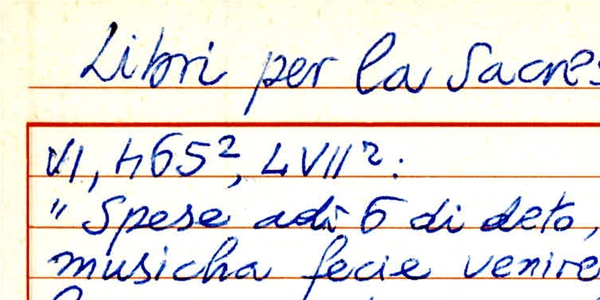 Libri per la Sacres
VI, 465², LVII²:
" Spese adì 6 di deto,
musicha fecie venire